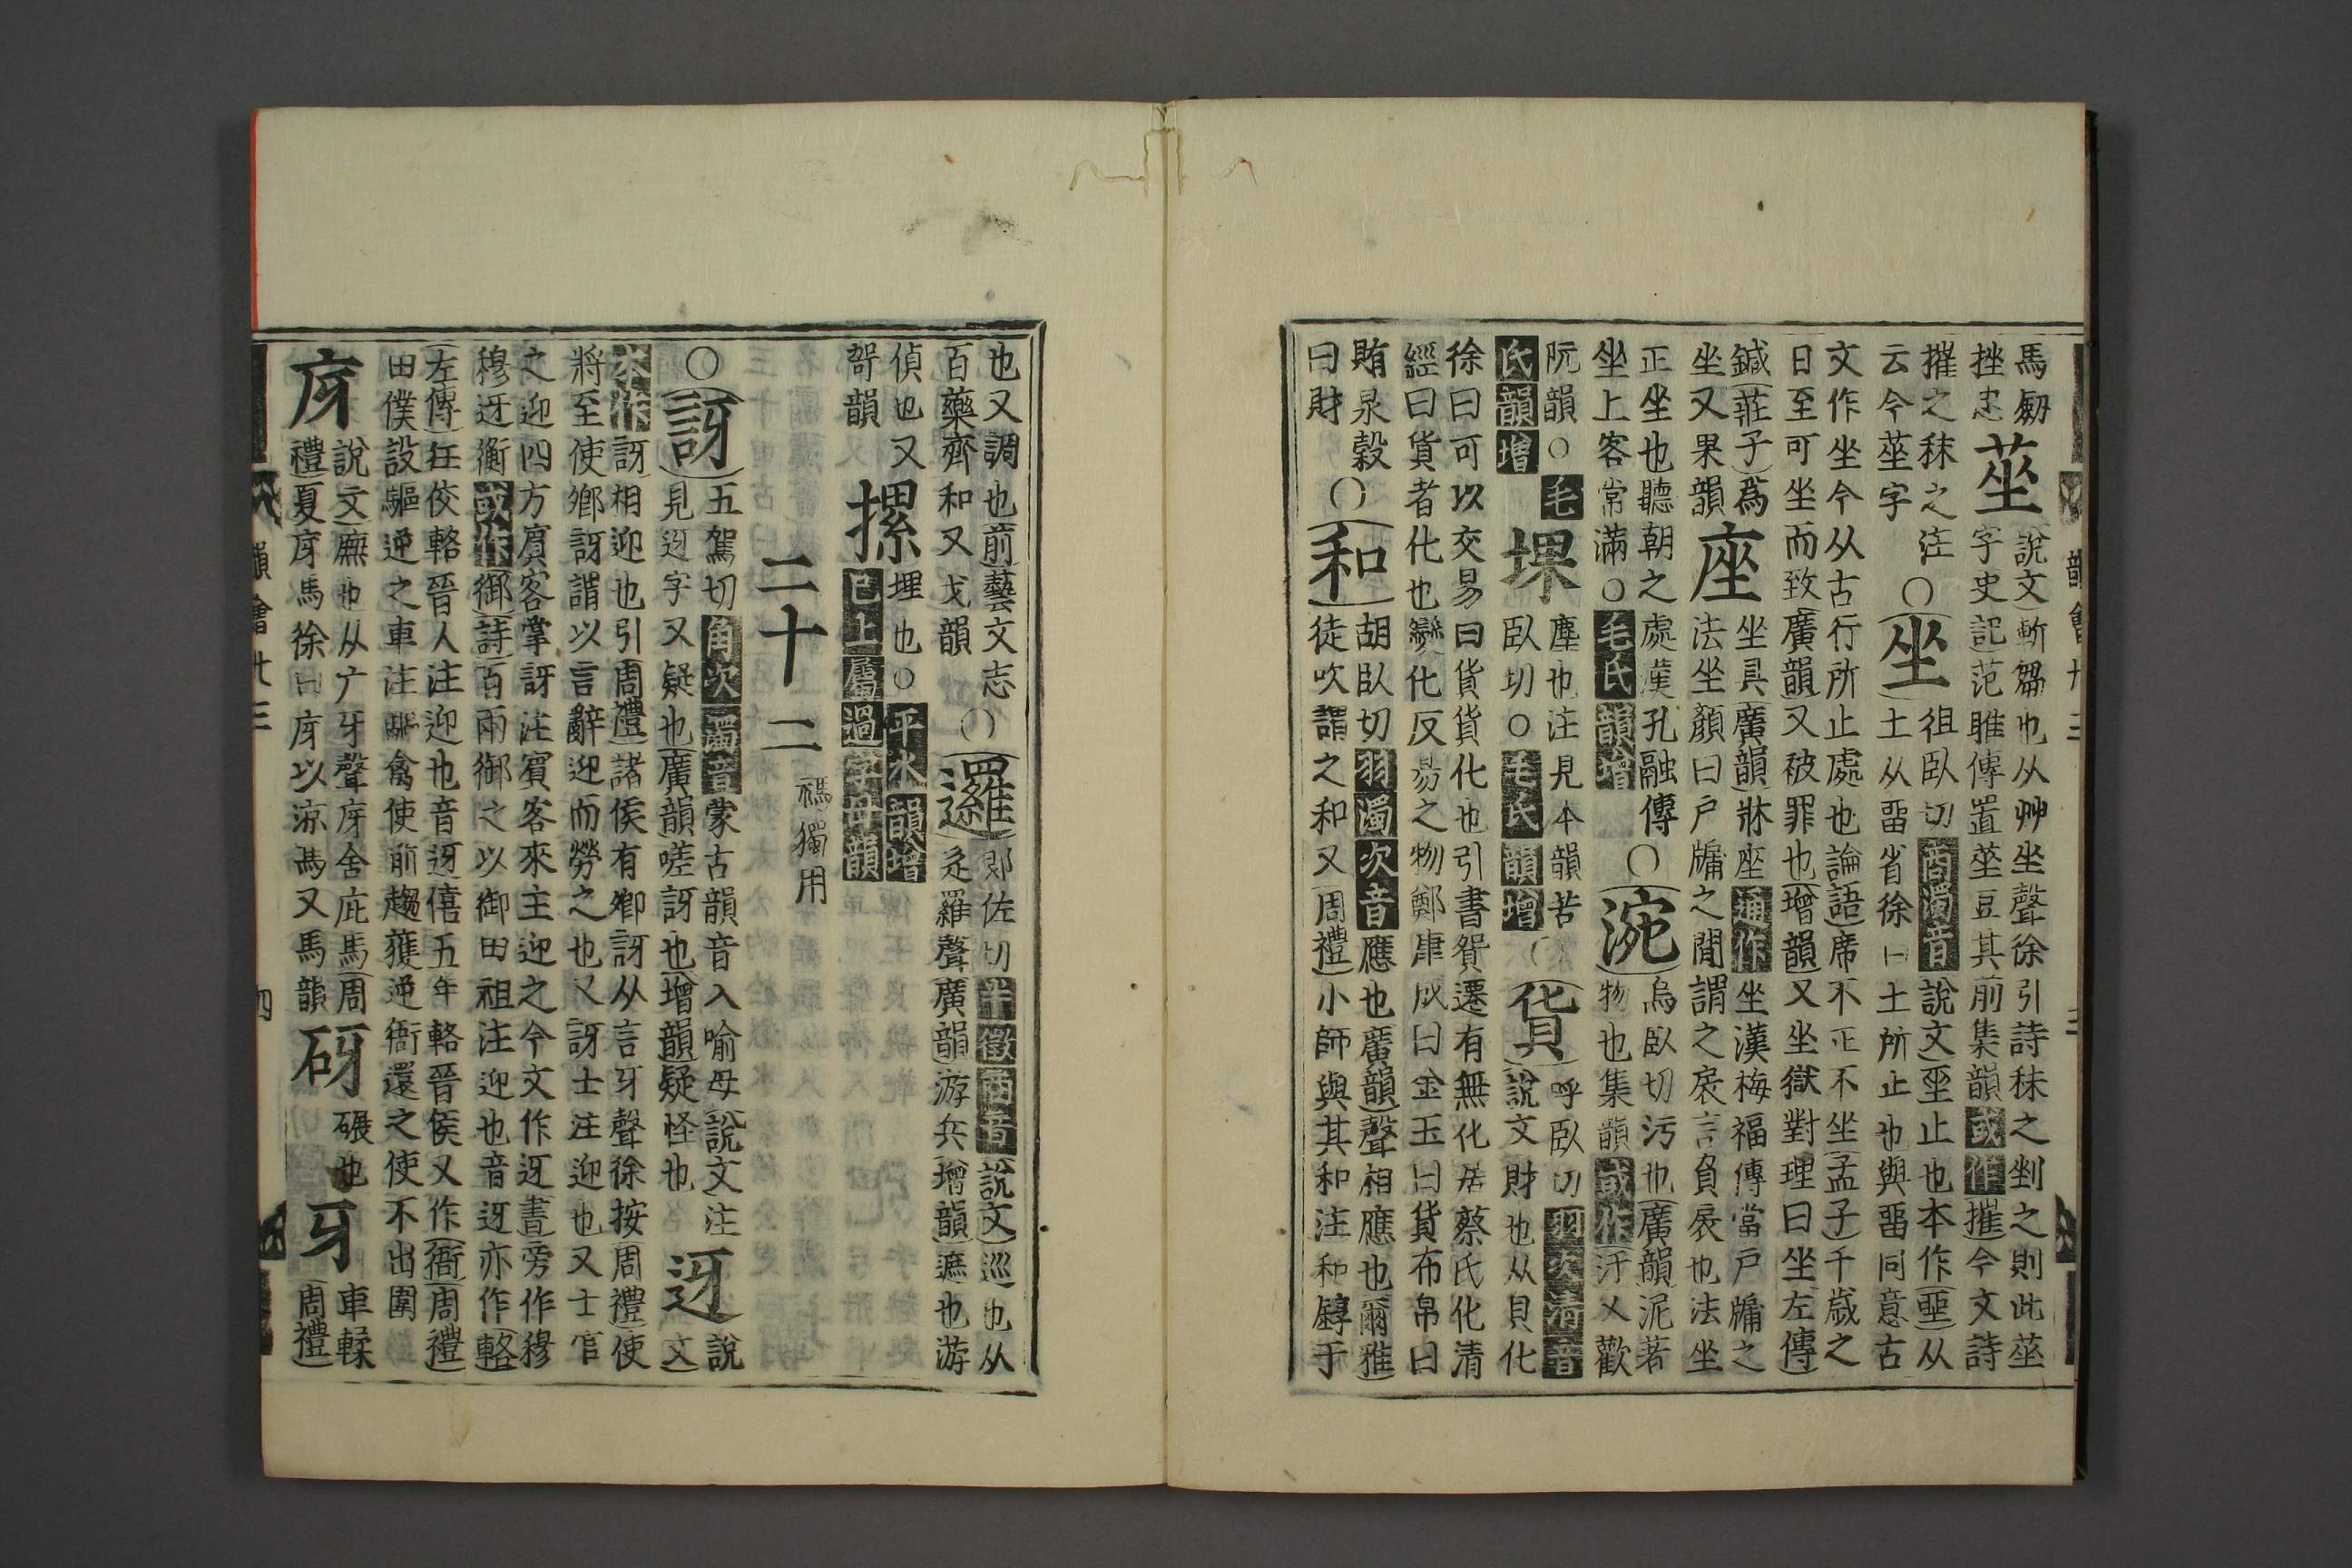 馬劒
挫忠
莝
說文斬芻也从艸坐聲徐引詩秣之剉之則此莝
字史記范雎傳置莝豆其前集韻或作摧今文詩
摧之秣之注
云今莝字
○坐
徂臥切商濁音說文坙止也本作坙从
土从畱省徐曰土所止也與畱同意古
文作坐今从古行所止處也論語席不正不坐孟子千歲之
日至可坐而致廣韻又被罪也增韻又坐獄對理曰坐左傳
鍼莊子爲
坐又果韻
座
坐具廣韻牀座通作坐漢梅福傳當戶牖之
法坐顏曰戶牖之閒謂之扆言負扆也法坐
正坐也聽朝之處漢孔融傳
坐上客常滿○毛氏韻增
○涴
烏臥切污也廣韻泥著
物也集韻或作汙又歡
阮韻○毛
氏韻增
堁
塵也注見本韻苦
臥切○毛氏韻增
○貨
呼臥切羽次清音
說文財也从貝化
徐曰可以交易曰貨貨化也引書貿遷有無化居蔡氏化清
經曰貨者化也變化反易之物鄭康成曰金玉曰貨布帛曰
賄泉穀
曰財
○和
胡臥切羽濁次音應也廣韻聲相應也爾雅
徒吹謂之和又周禮小師與其和注和錞于
也又調也前藝文志
百藥齊和又戈韻
○邏
郎佐切半徵商音說文巡也从
辵羅聲廣韻游兵增韻遮也游
偵也又
哿韻
摞
理也○平水韻增
已上屬過字母韻
二十二
禡獨用
○訝
五駕切角次濁音蒙古韻音入喻母說文注
見迓字又疑也廣韻嗟訝也增韻疑怪也
迓
說
文
本作訝相迎也引周禮諸侯有卿訝从言牙聲徐按周禮使
將至使卿訝謂以言辭迎而勞之也又訝士注迎也又士官
之迎四方賓客掌訝注賓客來主迎之今文作迓書旁作穆
穆迓衡或作御詩百兩御之以御田祖注迎也音迓亦作輅
左傳狂佼輅晉人注迎也音迓僖五年輅晉侯又作衙周禮
田僕設驅逆之車注驅禽使前趨獲逆衙還之使不出圍
庌
說文廡也从广牙聲庌舍庇馬周
禮夏庌馬徐曰庌以涼馬又馬韻
砑
碾也
牙
車輮
周禮
韻會廿三
四